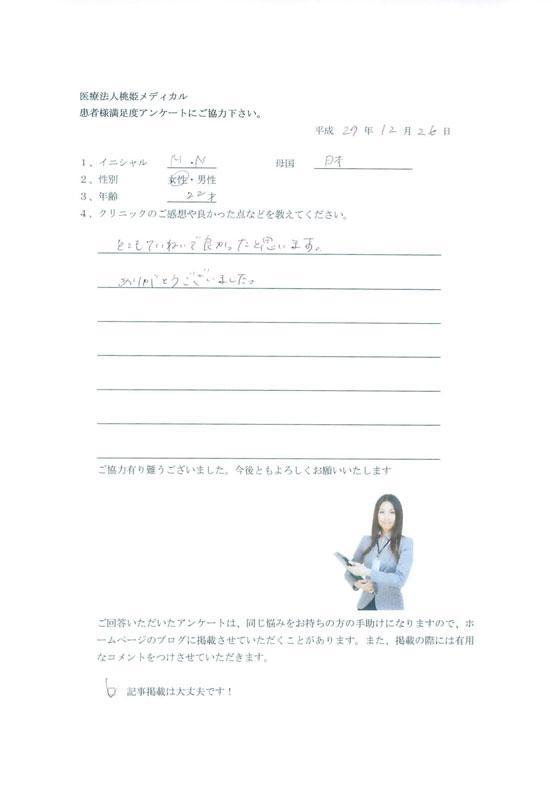 医療法人桃姫メディカル
患者様満足度アンケートにご協力下さい。
平成 29 年 12 月 26 日
1、イニシャル M・N 母国 日本
2、性別 女性・男性
3、年齢 22才
4、クリニックのご感想や良かった点などを教えてください。
とてもていねいで良かったと思います。
ありがとうございました。
ご協力有り難うございました。今後ともよろしくお願いいたします
ご回答いただいたアンケートは、同じ悩みをお持ちの方の手助けになりますので、ホ
ームページのブログに掲載させていただくことがあります。また、掲載の際には有用
なコメントをつけさせていただきます。
記事掲載は大丈夫です！